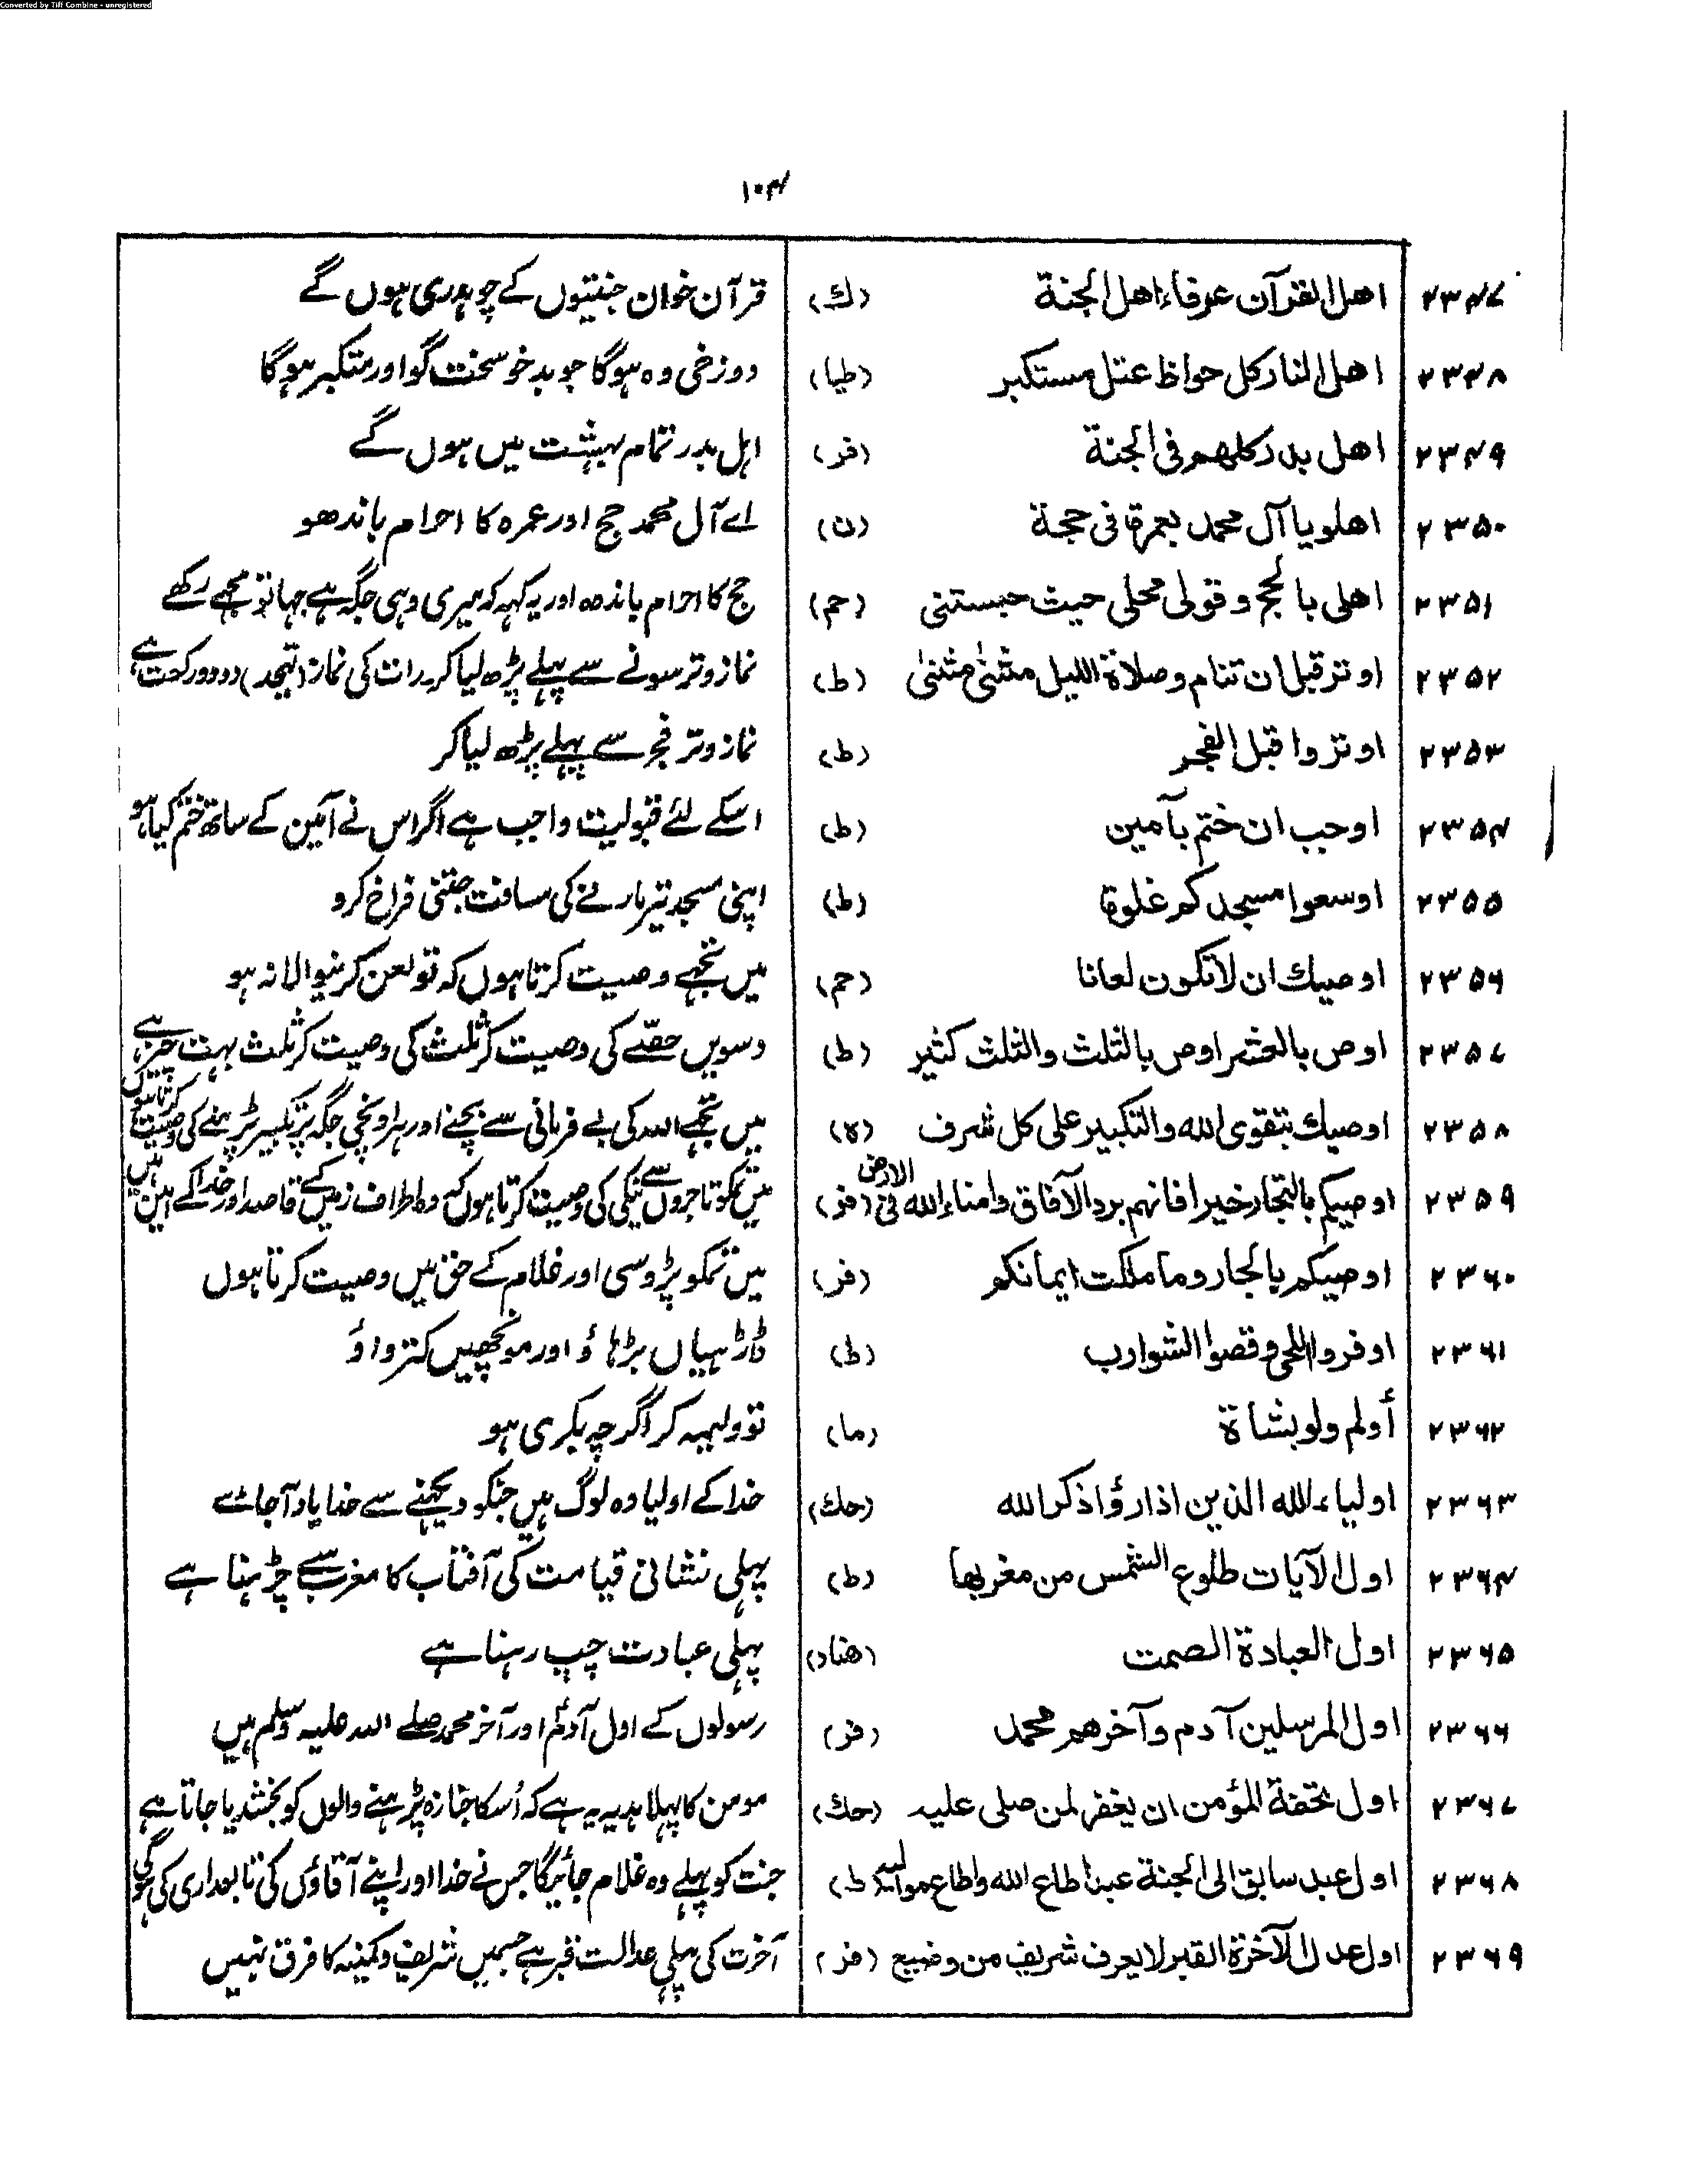 Converted by Tiff Combine - unregistered
۱۰۴
۲۳۴۷ اهل القرآن عرفاء اهل الجنة (ك) قرآن خوان جنتیوں کے چوہدری ہوں گے
۲۳۴۸ اهل النار كل جواظ عتل مستكبر (طیا) دوزخی وہ ہوگا جو بدخو سخت گو اور متکبر ہوگا
۲۳۴۹ اهل بدر كلهم فى الجنة (فر) اہل بدر تمام بہشت میں ہوں گے
۲۳۵۰ اهلو يا آل محمد بعمرة فى حجة (ن) اے آل محمد حج اور عمرہ کا احرام باندھو
۲۳۵۱ اهلى بالحج وقولى محلى حيث حبستنى (حم) حج کا احرام باندہ اور یہ کہہ کہ میری وہی جگہ ہے جہا تو مجھے رکھے
۲۳۵۲ اوتر قبل ان تنام وصلاة الليل مثنىٰ مثنىٰ (ط) نماز وتر سونے سے پہلے پڑھ لیا کر رات کی نماز (تہجد) دو دو رکعت ہے
۲۳۵۳ اوتروا قبل الفجر (ط) نماز وتر فجر سے پہلے پڑھ لیا کر
۲۳۵۴ اوجب ان ختم بآمين (ط) اسکے لئے قبولیت واجب ہے اگر اس نے آمین کے ساتھ ختم کیا ہو
۲۳۵۵ اوسعوا مسجدكم غلوة (ط) اپنی مسجد تیر مارنے کی مسافت جتنی فراخ کرو
۲۳۵۶ اوصيك ان لاتكون لعانا (حم) میں تجھے وصیت کرتا ہوں کہ تو لعن کرنیوالا نہ ہو
۲۳۵۷ اوص بالعشر اوص بالثلث والثلث كثير (ط) دسویں حصّے کی وصیت کر ثلث کی وصیت کر ثلث بہت چیز ہے
۲۳۵۸ اوصيك بتقوى الله والتكبير على كل شرف (ه) میں تجھے اللہ کی بے فرمانی سے بچنے اور ہر اونچی جگہ پر تکبیر پڑہنے کی وصیت کرتا ہوں
۲۳۵۹ اوصيكم بالتجار خيرا فانهم برد الآفاق وامناء الله فى الارض (فر) میں تمکو تاجروں سے نیکی کی وصیت کرتا ہوں کہ وہ اطراف زمین کے قاصد اور خدا کے امین ہیں
۲۳۶۰ اوصيكم بالجار وما ملكت ايمانكم (فر) میں تمکو پڑوسی اور غلام کے حق میں وصیت کرتا ہوں
۲۳۶۱ اوفروا اللحى وقصوا الشوارب (ط) ڈاڑہیاں بڑہاؤ اور مونچھیں کترواؤ
۲۳۶۲ أولم ولو بشاة (ما) تو ولیمہ کر اگرچہ بکری ہو
۲۳۶۳ اولياء الله الذين اذا رؤا ذكر الله (حك) خدا کے اولیا وہ لوگ ہیں جنکو دیکھنے سے خدا یاد آجائے
۲۳۶۴ اول الآيات طلوع الشمس من مغربها (ط) پہلی نشانی قیامت کی آفتاب کا مغرب سے چڑہنا ہے
۲۳۶۵ اول العبادة الصمت (هناد) پہلی عبادت چپ رہنا ہے
۲۳۶۶ اول المرسلين آدم وآخرهم محمد (فر) رسولوں کے اول آدمؑ اور آخر محمد صلے اللہ علیہ وسلم ہیں
۲۳۶۷ اول تحفة المؤمن ان يغفر لمن صلى عليه (حك) مومن کا پہلا ہدیہ یہ ہے کہ اُسکا جنازہ پڑہنے والوں کو بخشدیا جاتا ہے
۲۳۶۸ اول عبد سابق الى الجنة عبد اطاع الله واطاع مواليه (ط) جنت کو پہلے وہ غلام جائیگا جس نے خدا اور اپنے آقاؤں کی تابعداری کی ہوگی
۲۳۶۹ اول عدل الآخرة القبر لا يعرف شريف من وضيع (فر) آخرت کی پہلی عدالت قبر ہے جسمیں شریف و کمینہ کا فرق نہیں